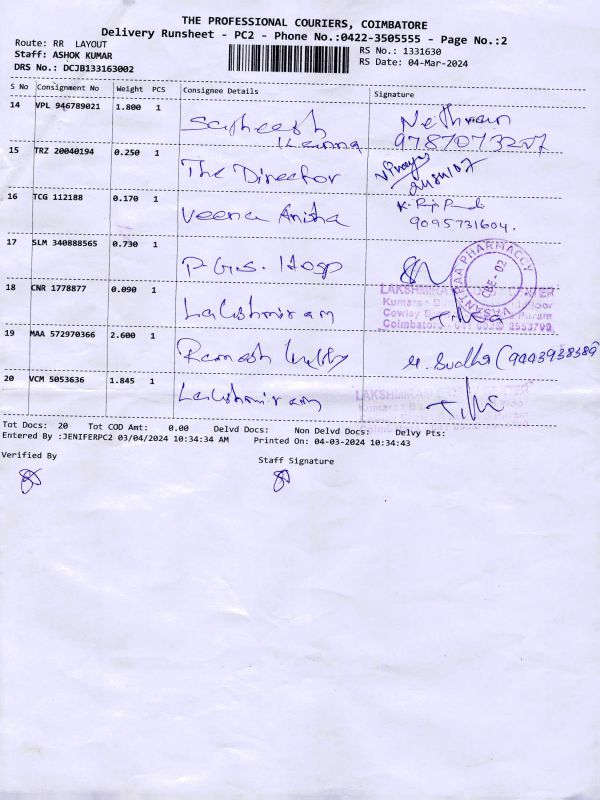 THE PROFESSIONAL COURIERS, COIMBATORE
Delivery Runsheet - PC2 - Phone No.:0422-3505555 - Page No.:2
Route: RR LAYOUT
Staff: ASHOK KUMAR
RS No.: 1331630
DRS No.: DCJB133163002
RS Date: 04-Mar-2024
S No Consignment No Weight PCS Consignee Details Signature
14 VPL 946789021 1.800 1
15 TRZ 20040194 0.250 1 The Director
16 TCG 112188 0.170 1 Veena Anitha
9095731604.
17 SLM 340888565 0.730 1 P.G.S. Hosp
18 CNR 1778877 0.090 1 Lakshmiram
19 MAA 572970366 2.600 1 Ramesh
M. Sudha (9443938389
20 VCM 5053636 1.845 1 Lakshmiram
Tot Docs: 20 Tot COD Amt: 0.00 Delvd Docs: Non Delvd Docs: Delvy Pts:
Entered By :JENIFERPC2 03/04/2024 10:34:34 AM Printed On: 04-03-2024 10:34:43
Verified By
Staff Signature